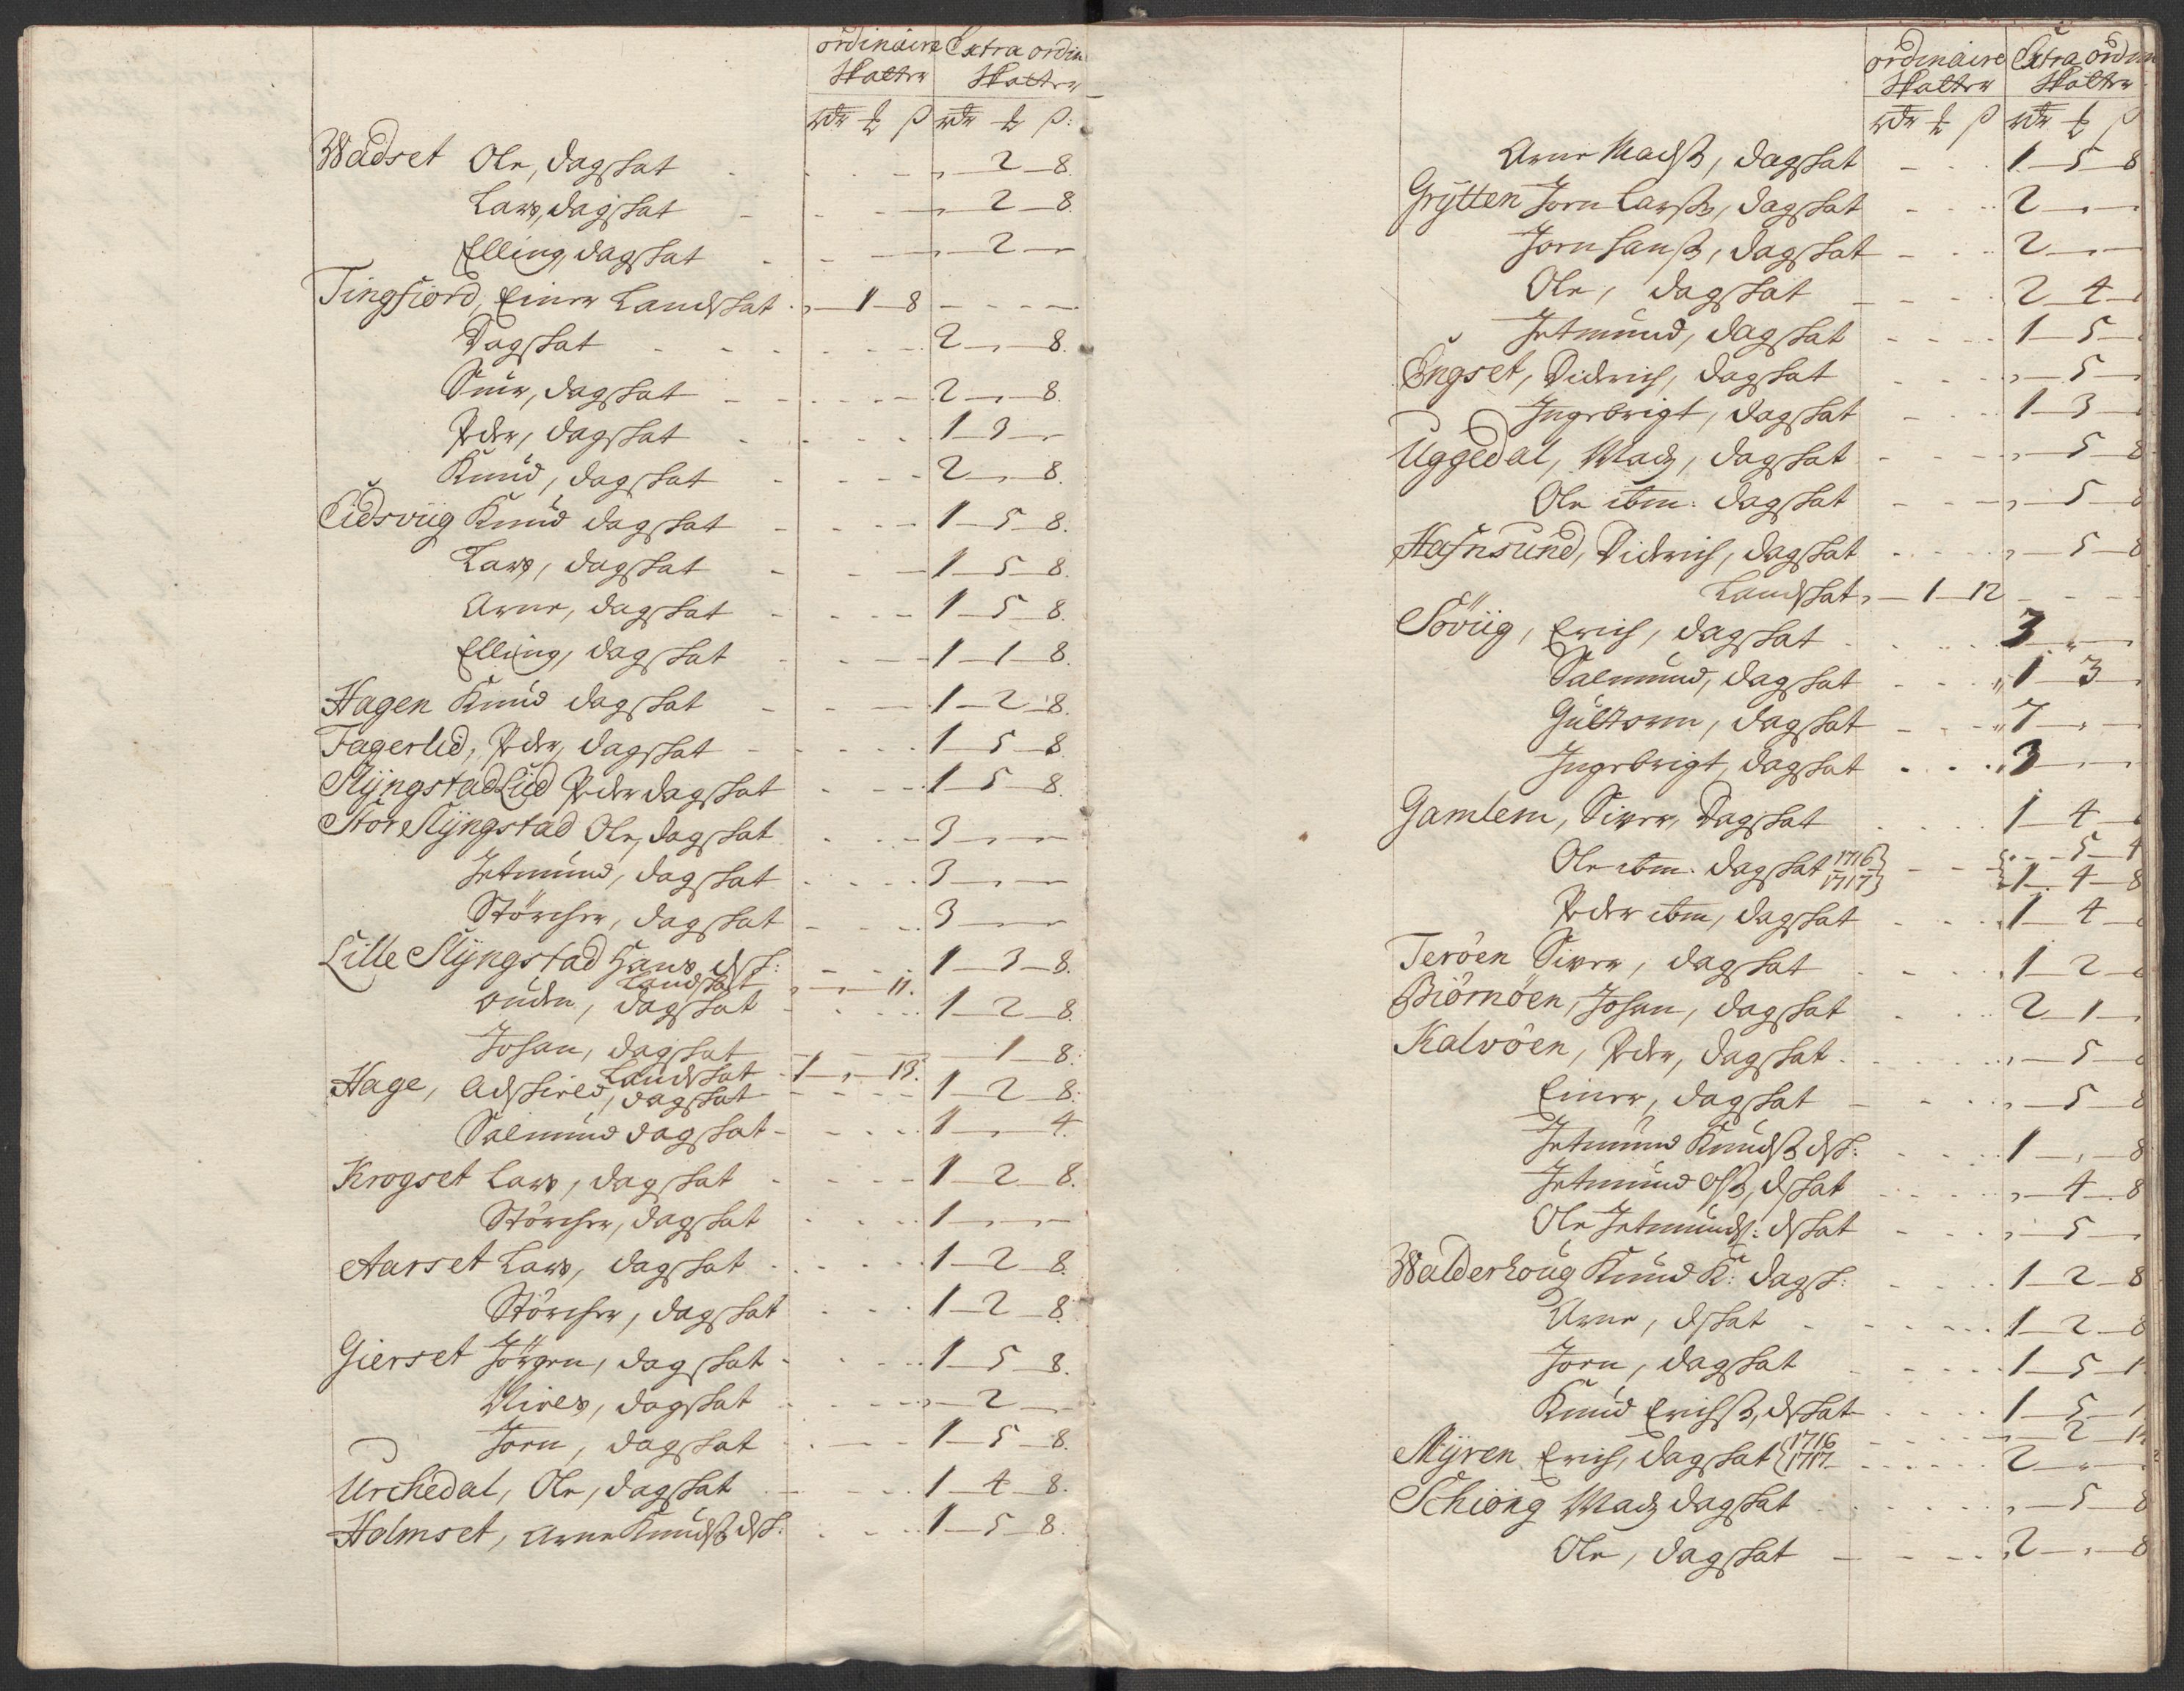 ordinaire Extra ordin
Skatter Skatter
rdr ß rdr ß:
Wadset Ole, dagskat - 2 - 8.
Lars, dagskat - 2 - 8.
Elling dagskat - 2 -
Tingfiord, Einer Landskat - 1 - 8 - - -
Dagskat - 2 - 8.
Siur, dagskat - 2 - 8.
Peder, dagskat - 1 - 3 -
Knud, dagskat - 2 - 8.
Eidsviig Knud dagskat - 1 - 5 - 8.
Lars, dagskat - 1 - 5 - 8.
Arne, dagskat - 1 - 5 - 8.
Elling, dagskat - 1 - 1 - 8.
Hagen Knud dagskat - 1 - 2 - 8.
Fagerlid, Peder, dagskat - 1 - 5 - 8
SlÿngstadLiid Peder dagskat - 1 - 5 - 8.
Stor Slÿngstad Ole, dagskat - 3 - -
Jetmund, dagskat - 3 - -
Störcher, dagskat - 3 - -
Lille Slÿngstad Hans dsk: - 1 - 3 - 8.
Landskat - 11.
Ouden, dagskat - 1 - 2 - 8.
Johan, dagskat - 1 - 8:
Landskat - 1 - 13.
Hage, Adskired, dagskat - 1 - 2 - 8:
Salmund dagskat - 1 - 4.
Krogset Lars, dagskat - 1 - 2 - 8.
Störcher, dagskat - 1 - -
Aarset Lars, dagskat - 1 - 2 - 8.
Störcher, dagskat - 1 - 2 - 8.
Gierset Jörgen, dagskat - 1 - 5 - 8.
Niels, dagskat - 2 -
Jorn, dagskat - 1 - 5 - 8.
Urchedal, Ole, dagskat - 1 - 4 - 8.
Holmset, Arne Knudsß dsk: - 1 - 5 - 8.
ordinaire Extra ordin
Skatter Skatter
rdr ß rdr ß
Arne Madsß, dagskat - 1 - 5 - 8
Grÿtten Jorn Larsß, dagskat - 2 - -
Jorn Hansß, dagskat - 2 - -
Ole, dagskat - 2 - 4 -
Jetmund, dagskat - 1 - 5 -
Engset, Didrich, dagskat - 5 -
Ingebrigt, dagskat - 1 - 3
Uggedal, Mads, dagskat - 5 - 8
Ole ibm: dagskat - 5 - 8
Hafnsund, Didrich, dagskat - 5 - 8
Landskat - 1 - 12 - - -
Söviig, Erich, dagskat - 3 - -
Salmund, dagskat - 1 - 3 -
Gultorm, dagskat - 7 - -
Ingebrigt, dagskat - 3 - -
Gamlem, Siver, Dagskat - 1 - 4 -
Ole ibm. dagskat 1716 - 5 - 4
1717 - 1 - 4 - 8
Peder ibm, dagskat - 1 - 4 -
Teröen Siver, dagskat - 1 - 2 -
Biörnöen, Johan, dagskat - 2 - 1 -
Kalvöen, Peder, dagskat - 5 -
Einer, dagskat - 5 - 8
Jetmund Knudsß dsk: - 1 - 8
Jetmund Olsß, dskat - 4 - 8
Ole Jetmunds: dskat - 5 -
Walderhoug Knud K: dagsk: - 1 - 2 - 8
Arne, dskat - 1 - 2 - 8
Jorn, dagskat - 1 - 5 - 1
Knud Erichsß, dskat - 1 - 5 - 1
1716 - 2 - 1
Mÿren Erich, dagskat 1717 - 2 - -
Schiong Mads dagskat - 5 - 8
Ole, dagskat - 2 - 8